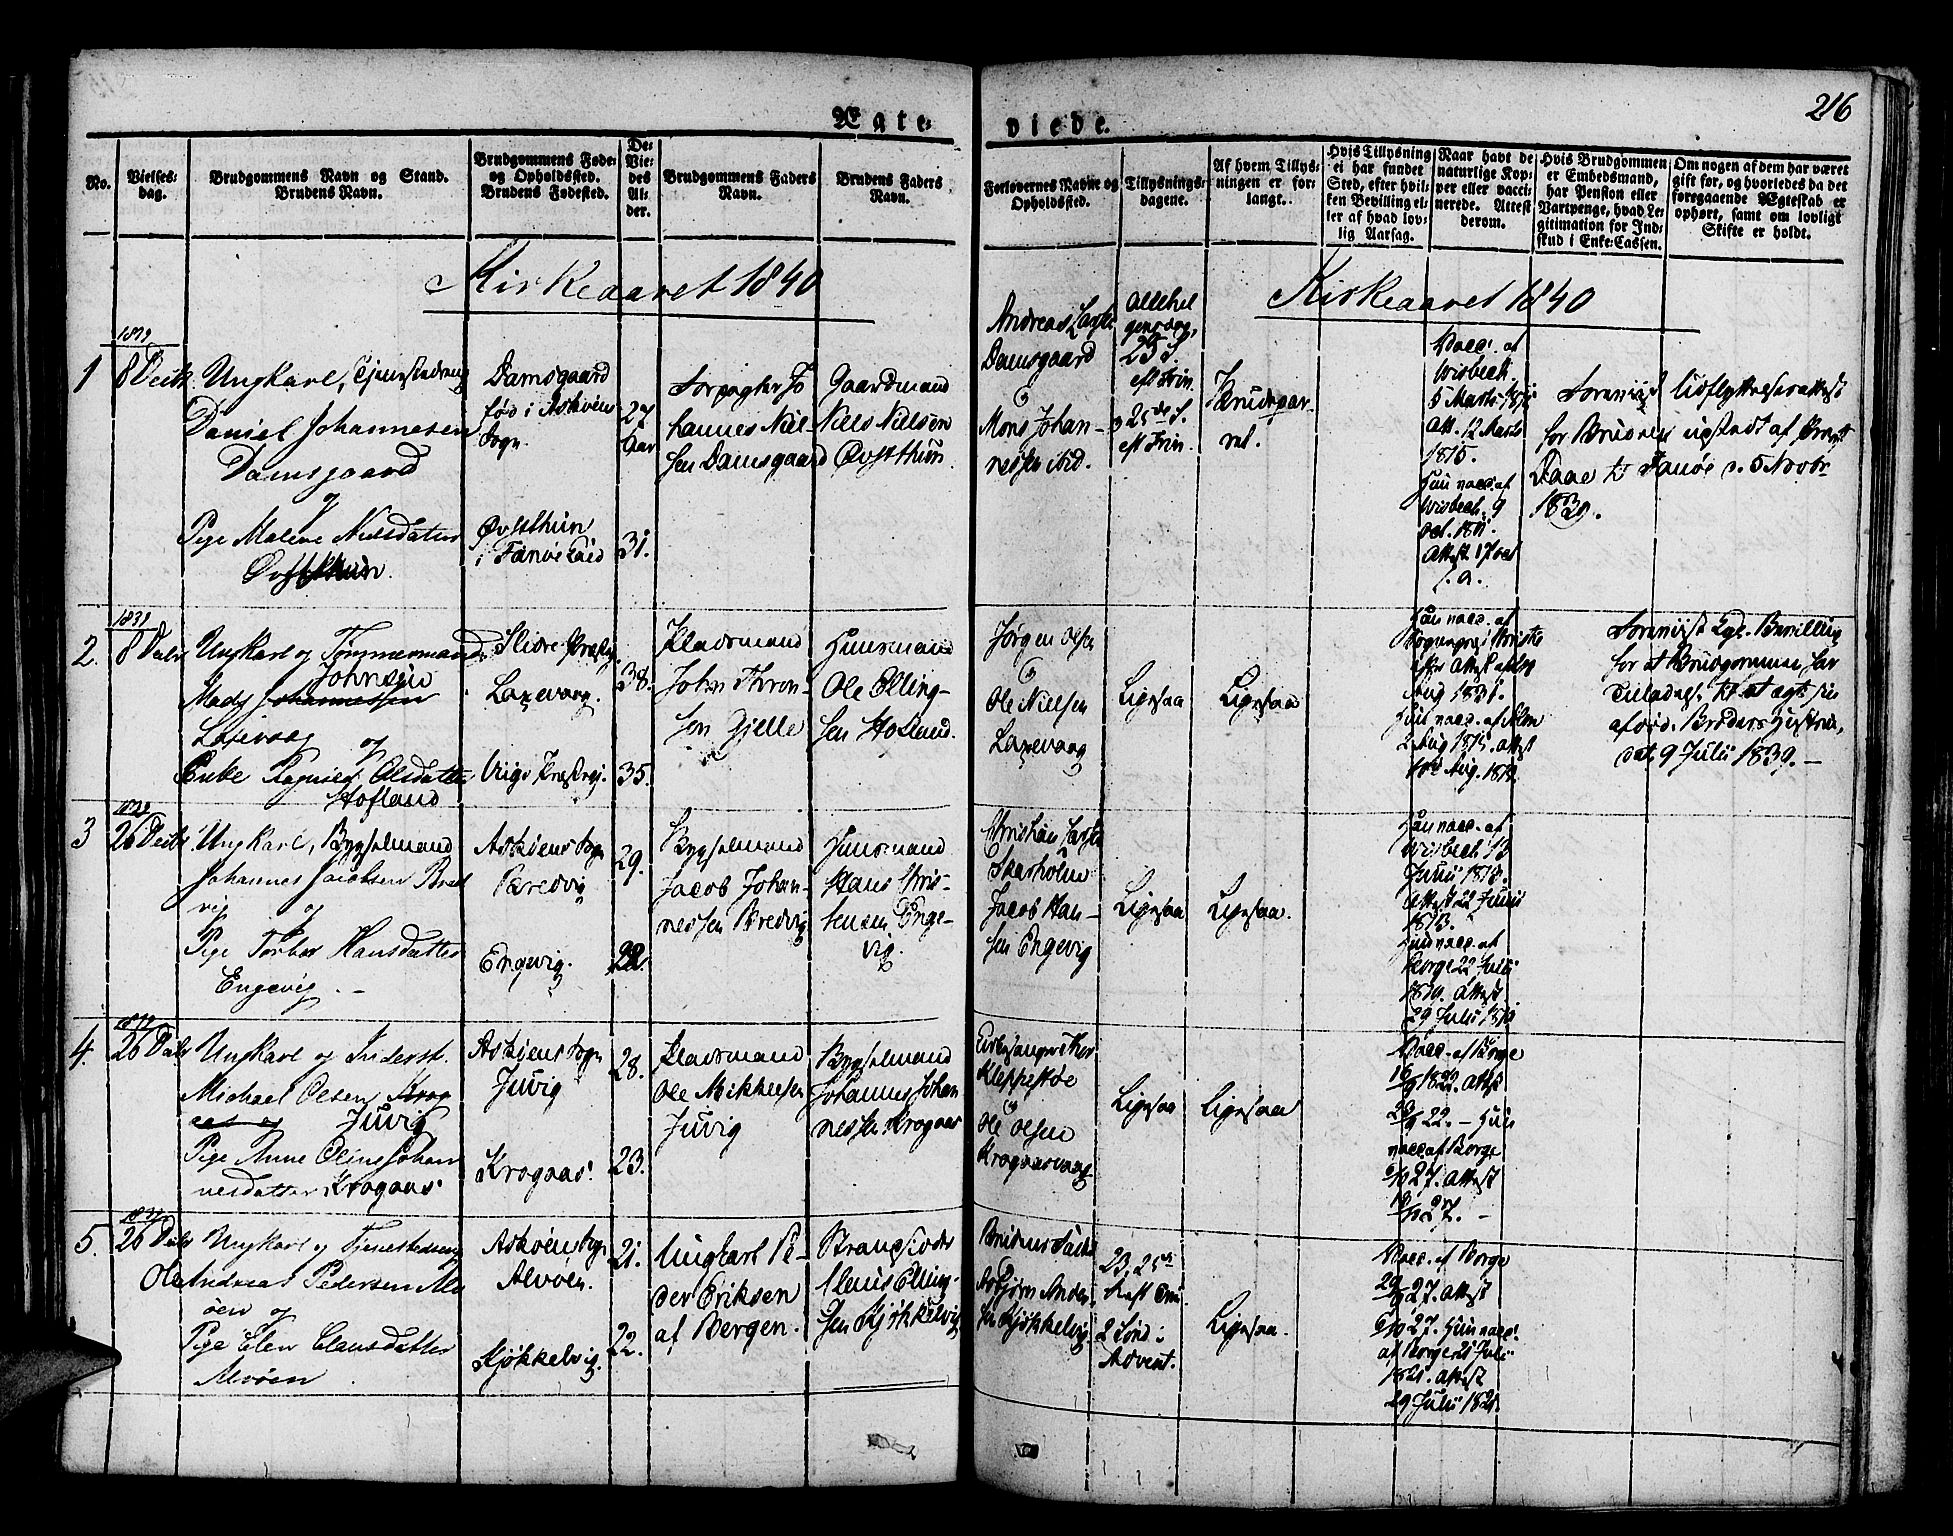 216
Ægte-
viede.
No.
Vielses-
dag.
Brudgommens Navn og Stand.
Brudens Navn.
Brudgommens Føde-
og Opholdssted.
Brudens Fødested.
De
Vie-
des
Al-
der.
Brudgommens Faders
Navn.
Brudens Faders
Navn.
Forlovernes Navne og
Opholdssted.
Tillysnings-
dagene.
Af hvem Tillys-
ningen er for-
langt.
Hvis Tillysning
ei har fundet
Sted, efter hvil-
ken Bevilling el-
ler af hvad lov-
lig Aarsag.
Naar havt de
naturlige Kop-
per eller vacci-
nerede. Attest
derom.
Hvis Brudgommen
er Embedsmand,
har Pension eller
Vartpenge, hvad Le-
gitimation for Ind-
skud i Enke-Cassen.
Om nogen af dem har været
gift før, og hvorledes da det
foregaaende Ægteskab er
ophørt, samt om lovligt
Skifte er holdt.
Kirkeaaret 1840
Kirkeaaret 1840
1839
1
8 Decbr
Ungkarl, Tjenestedreng
Daniel Johannesen
Damsgaard
og
Pige Malene Nielsdatter
Øvstthun.
Damsgaard
fød i Askøens
Sogn.
Øvstthun
i Fanøe
27
Aar
31.
Forpagter Jo
hannes Niel
sen Damsgaard
Gaardmand
Niels Nielsen
Øvstthun.
Andreas
Damsgaard
Mons Johan-
nessen ibid.
Allehel
gensdag,
23 S.
eft Trin.
25de S.
eft Trin.
Brudepar-
ret.
Vacc. af
Wisbech.
5 Marts
Att. 12 Marts
1815.
Hun vacc. af
Wisbech. 9
Oct. 1811.
Attest 17 Oct
s. a.
Foreviist Udflytningsattest
for Bruden udstædt af
Daae til Fanøe d. 5 Novbr
1839.
1839
2.
8 Decbr
Ungkarl og Tømmermand
Johnsen
Mads Johannessen
Laxevaag og
Enke Ragnild Olsdatter
Hofland
Slidre
Laxevaag.
38.
35.
Pladsmand
John Thron-
sen Gjelle
Huusmand
Ole Elling-
sen Hofland.
Jørgen Olsen
og
Ole Nielsen
Laxevaag
Ligesaa
Ligesaa
Han vacc. af
Aug 1831.
Hun vacc. af
2 Aug 1815. Attest
Foreviist Kgl. Bevilling
for at Brudgommen har
Tilladelse til at ægte sin
afdøde Broders Hustrue,
dat. 9 Julii 1839. —
1839
3
26 Decbr
Ungkarl, Bygselmand
Johannes Jacobsen Bred
vig og
Pige Torbor Hansdatter
Engevig. —
Askøens Sogn
Bredvig
Engevig.
29.
22.
Bygselmand
Jacob Johan-
nessen Bredvig
Huusmand
Hans Chris-
tensen Enge-
vig.
Christian
Skarholm
Jacob Han-
sen Engevig
Ligesaa
Ligesaa.
Han vacc. af
Wisbech 13
Julii
Attest 22 Junii
1813.
Hun vacc. af
Borge 22 Julii
1819. Attest
29 Julii 1819.
1839
4.
26 Decbr
Ungkarl og Inderst.
Michael Olsen Krog
aas og Juvig
Pige Anne Oline Johan
nesdatter Krogaas
Askøens Sogn
Juvig
Krogaas
28.
23.
Pladsmand
Ole Mikkelsen
Juvig
Bygselmand
Johannes Johan
nessen Krogaas
Kirkesanger
Kleppestøe
og
Ole Olsen
Krogaasvaag
Ligesaa
Ligesaa
Vacc. af Borge
16/9 1822. Attest
23/9 22. — Hun
vacc. af Borge
6/10 27. Attest
13/10 27. —
1839
5.
26 Decbr
Ungkarl og Tjenestedreng
Ole Andreas Pedersen Alv
øen og
Pige Elen Clausdatter
Alvøen.
Askøens Sogn
Alvøen.
Kjøkkelvig.
21.
22.
Ungkarl Pe-
der Eriksen
af Bergen.
Strandsidder
Claus Elling-
sen Kjøkkelvig
Asbjørn Ander
sen Kjøkkelvig
23. 25de
S. eft Trin.
2 Sønd. i
Advent.
Ligesaa.
Vacc. af Borge
29/9 27. Attest
6/10 27. Hun vacc.
af Borge 21 Julii
1821. Attest
29 Julii 1821.